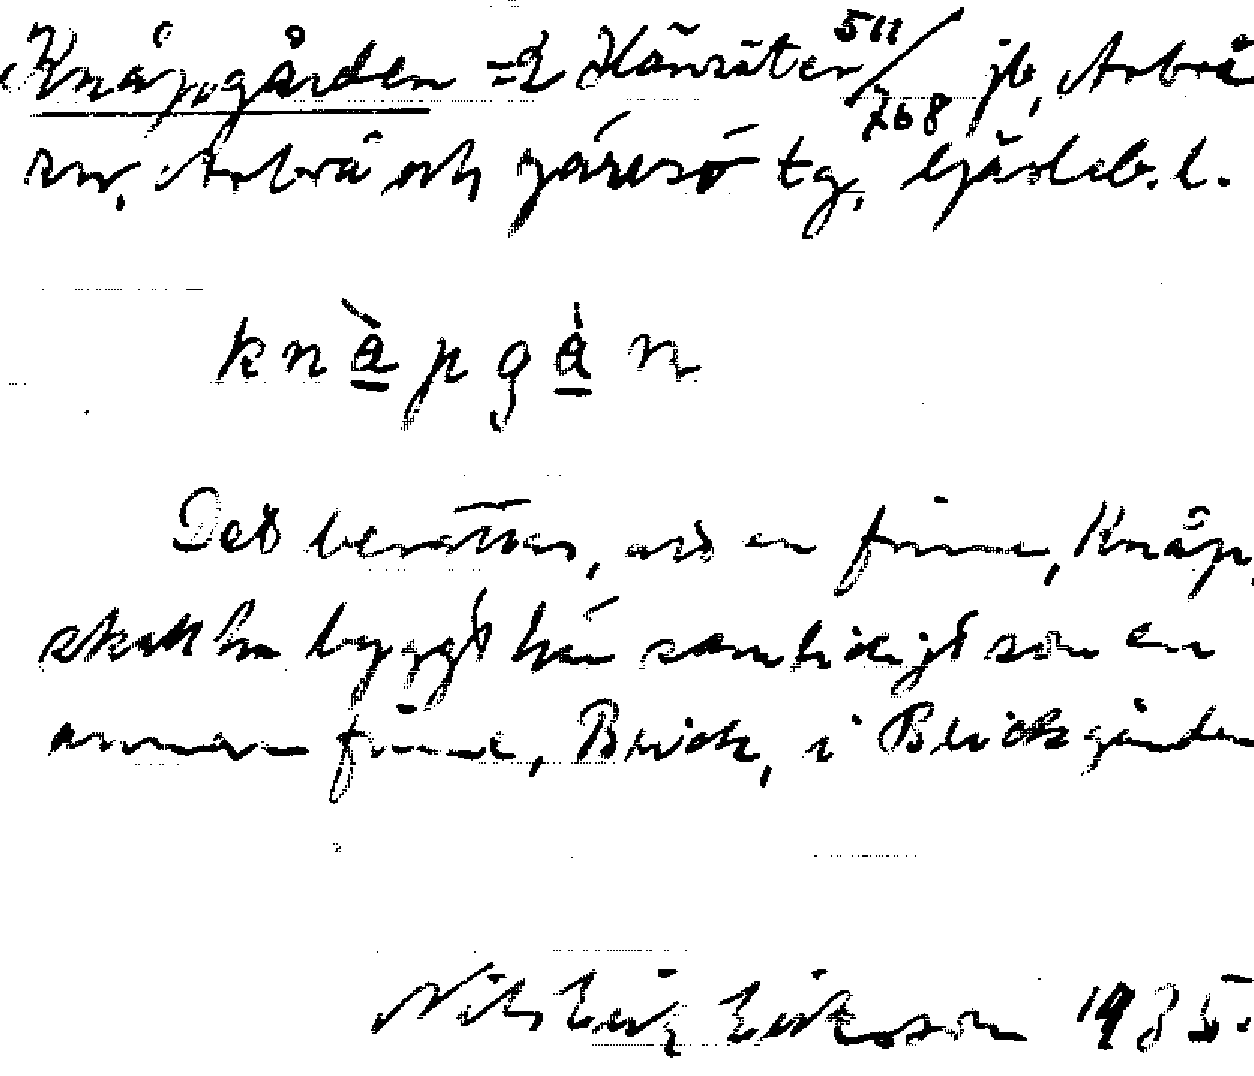 Knåpgården = 2 Hänsäter 511/768 jb, Arbrå
sn, Arbrå och Järvsö tg, Gävleb. l.
knàpgàn
Det berättas, att en finne, Knåp,
skall ha byggt här samtidigt som en
annan finne, Blick, i Blickgården
Nils Erik Eriksson 1935.